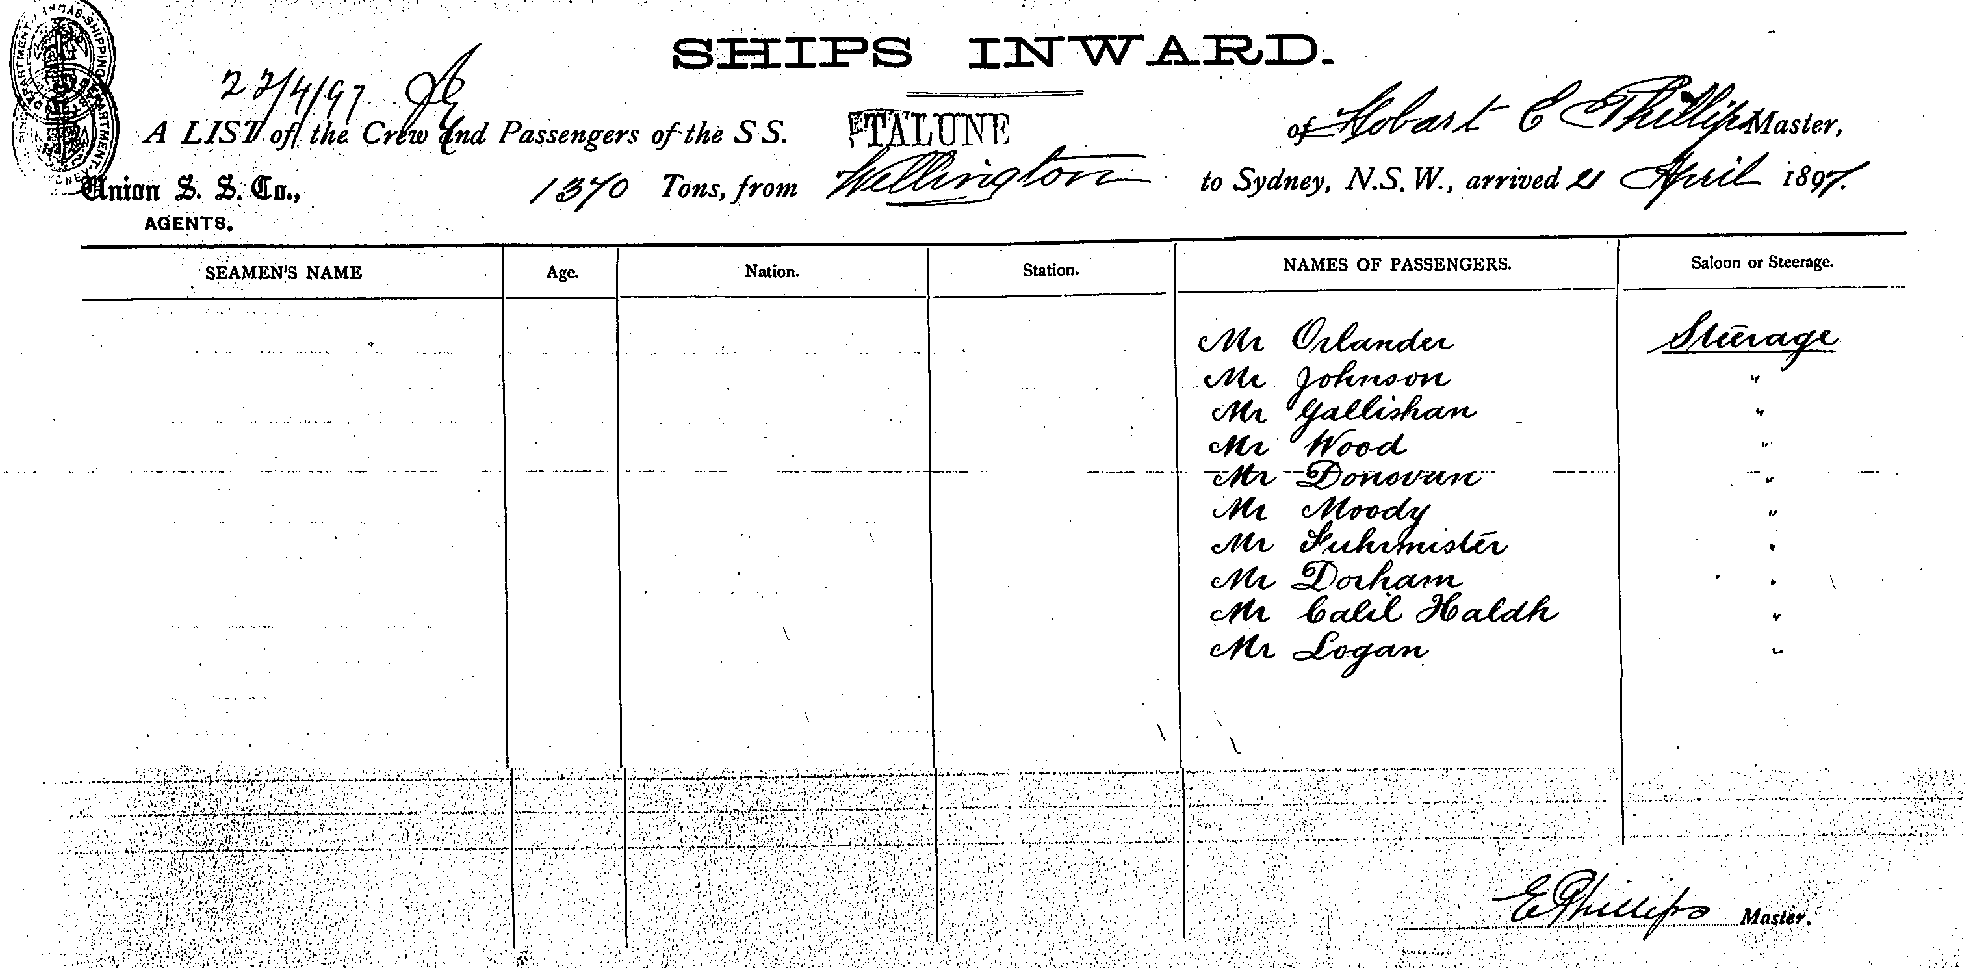 SHIPS INWARD.
22/4/97
A LIST of the Crew and Passengers of the S S. TALUNE of Hobart E Phillips Master,
Union S. S. Co., 1370 Tons, from Wellington to Sydney, N.S.W., arrived 21 April 1897.
AGENTS.
SEAMEN'S NAME Age. Nation. Station. NAMES OF PASSENGERS. Saloon or Steerage.
Mr Orlander Steerage
Mr Johnson "
Mr Gallishan "
Mr Wood "
Mr Donovan "
Mr Moody "
Mr Fuhrmister "
Mr Dorham "
Mr Calil Haldh "
Mr Logan "
E Phillips Master.